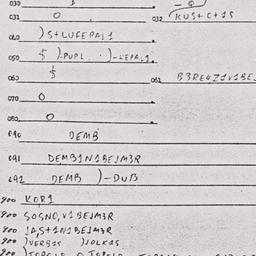 030
031 0 032 KUS+C+15
040 )S+LUFEPAL1.
050 5 )-PUPL. . )-KEPAL1.
060 5 061 B3RE4Z1V1BE
070 0
080 0
090 DEMB
091 DEMB1N1BEJM3R
092 DEMB )-DUB
900 KOR1
900 SOSNO,V1BEJM3R
900 JA,S+1N1BEJM3R
900 )VERBAS )JOLKAS
900